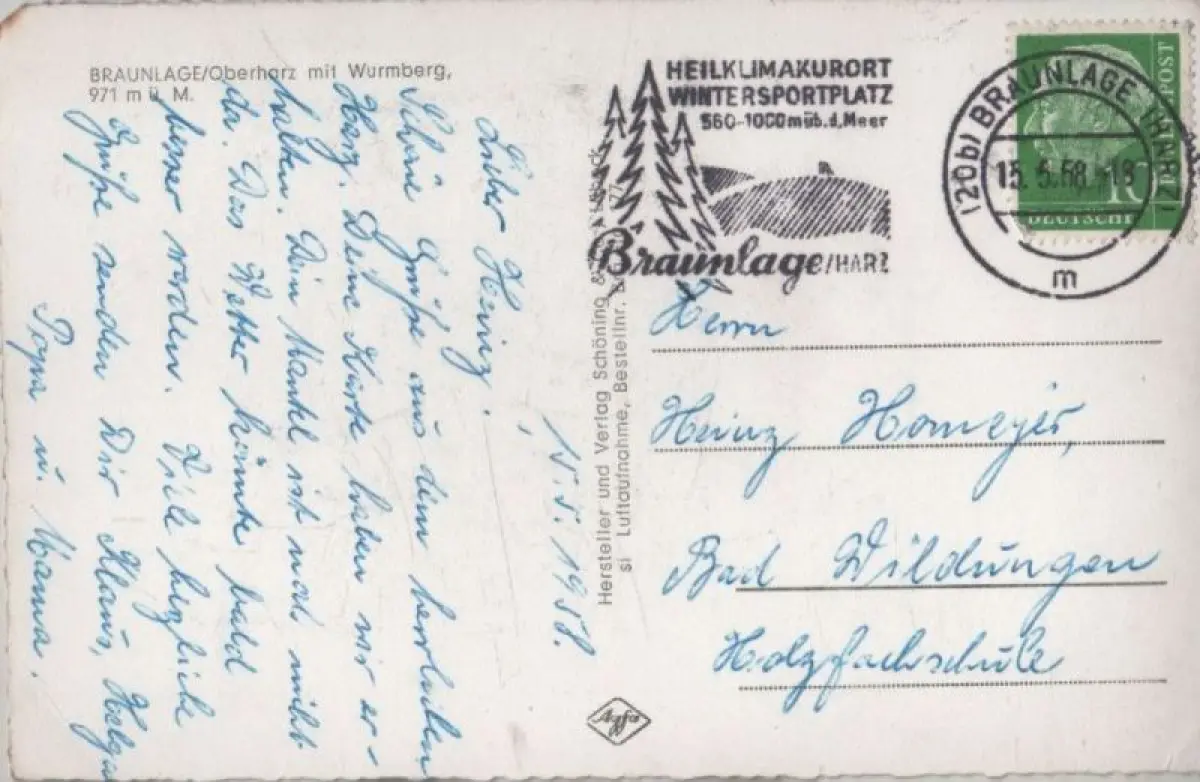 BRAUNLAGE/Oberharz mit Wurmberg,
971 m ü. M.
15.5.1958.
Lieber Heinz,
Schöne Grüße aus dem herrlichen
Harz. Deine Karte haben wir er-
halten. Dein Mantel ist noch nicht
da. Das Wetter könnte bald
besser werden. Viele herzliche
Grüße senden Dir Klaus, Helga
Papa u. Mama.
Hersteller und Verlag Schöning &
si Luftaufnahme, Bestellnr.
HEILKLIMAKURORT
WINTERSPORTPLATZ
560-1000 m üb. d. Meer
Braunlage/HARZ
(20b) BRAUNLAGE (HARZ)
15.5.58.-18
m
POST
10
DEUTSCHE
Herrn
Heinz Homeyer,
Bad Wildungen
Holzfachschule
Agfa